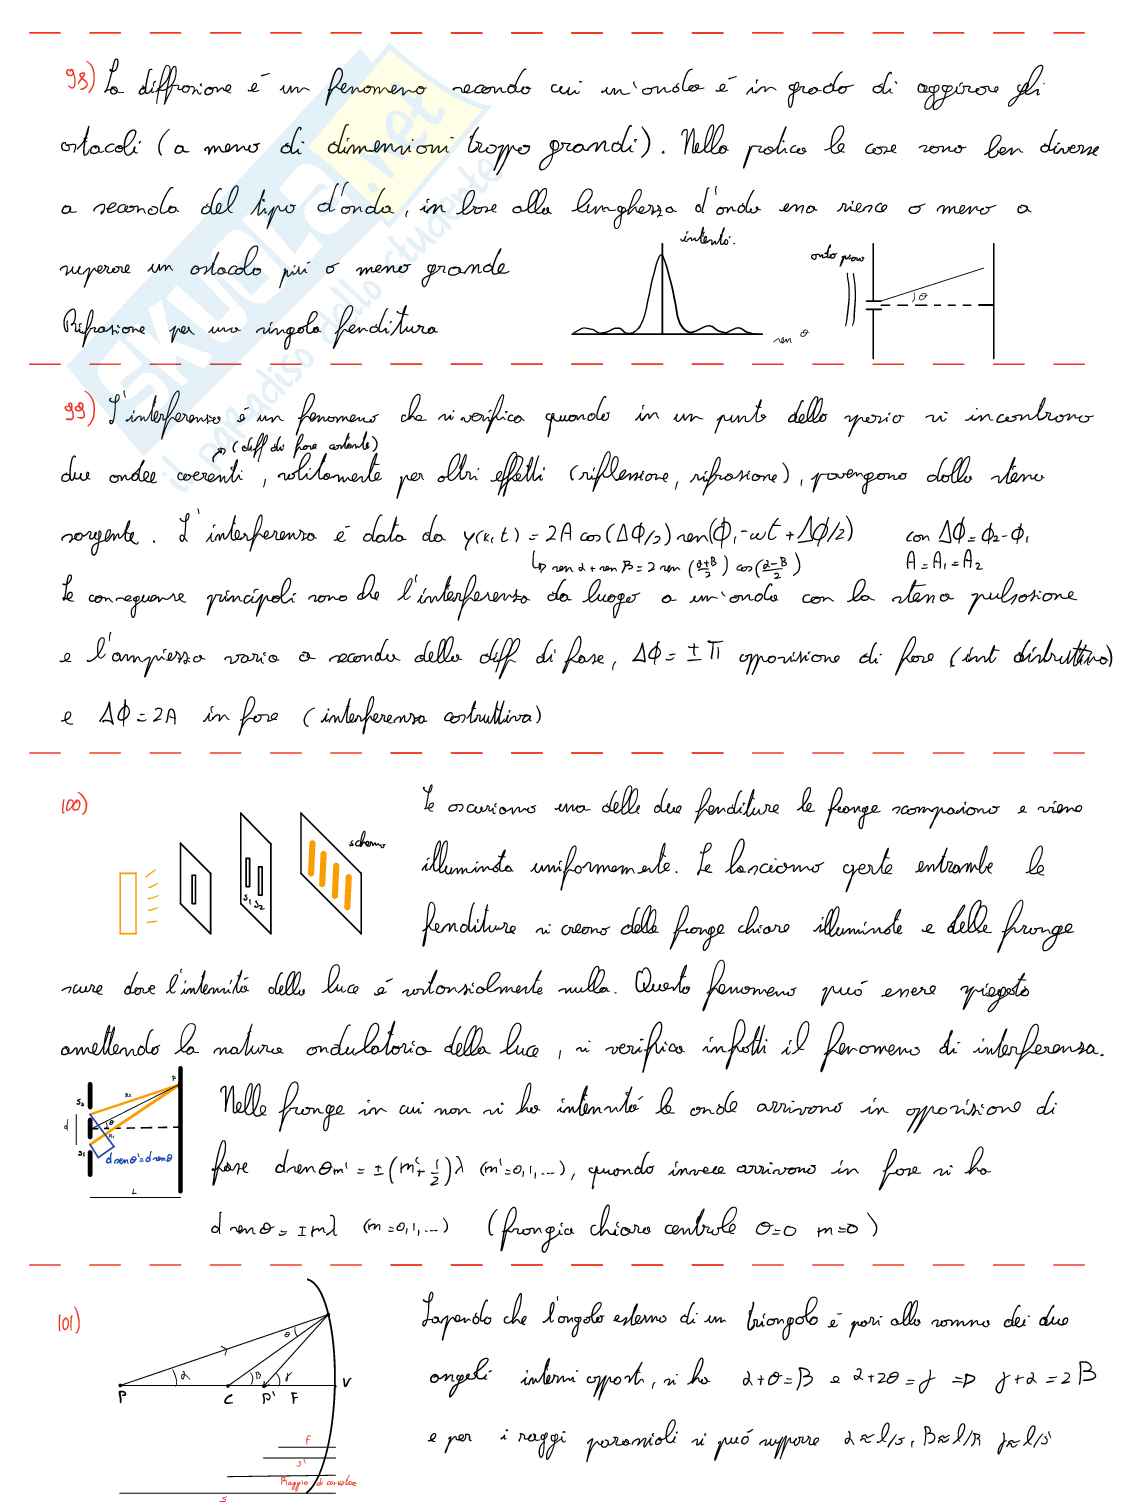 98) La diffrazione é un fenomeno secondo cui un'onda é in grado di aggirare gli
ostacoli (a meno di dimensioni troppo grandi). Nella pratica le cose sono ben diverse
a seconda del tipo d'onda, in base alla lunghezza d'onda essa riesce o meno a
superare un ostacolo piú o meno grande
Rifrazione per una singola fenditura
intensità.
sen θ
onda piana
θ
99) L'interferenza é un fenomeno che si verifica quando in un punto dello spazio si incontrono
(diff di fase costante)
due ondee coerenti, solitamente per altri effetti (riflessione, rifrazione), provengono dalla stessa
sorgente. L'interferenza é data da y(x,t) = 2A cos(ΔΦ/2) sen(Φ₁-ωt+ΔΦ/2) con ΔΦ=Φ₂-Φ₁
↳ sen α + sen β = 2 sen (α+β/2) cos(α-β/2) A=A₁=A₂
Le conseguenze principali sono che l'interferenza da luogo a un'onda con la stessa pulsazione
e l'ampiezza varia a seconda della diff di fase, ΔΦ=±π opposizione di fase (int distruttiva)
e ΔΦ=2A in fase (interferenza costruttiva)
100)
schermo
S₁ S₂
Se oscuriamo una delle due fenditure le frange scompaiono e viene
illuminata uniformemente. Se lasciamo aperte entrambe le
fenditure si creano delle frange chiare illuminate e delle frange
scure dove l'intensitá della luce é sostanzialmente nulla. Questo fenomeno puó essere spiegato
amettendo la natura ondulatoria della luce, si verifica infatti il fenomeno di interferenza.
S₂
P
d
θ
S₁
d senθ'=d senθ
L
Nelle frange in cui non si ha intensitá le onde arrivano in opposizione di
fase d senθm' = ±(m'+1/2)λ (m'=0,1,...), quando invece arrivono in fase si ha
d senθ = ±mλ (m=0,1,...) (frangia chiara centrale θ=0 m=0)
101)
θ
α
β
γ
P C P' F V
F
S'
Raggio di curvatura
S
Sapendo che l'angolo esterno di un triangolo é pari alla somma dei due
angoli interni opposti, si ha α+θ=β e α+2θ=γ ⇒ γ+α=2β
e per i raggi parassiali si puó supporre α≈l/s, β≈l/R γ≈l/s'